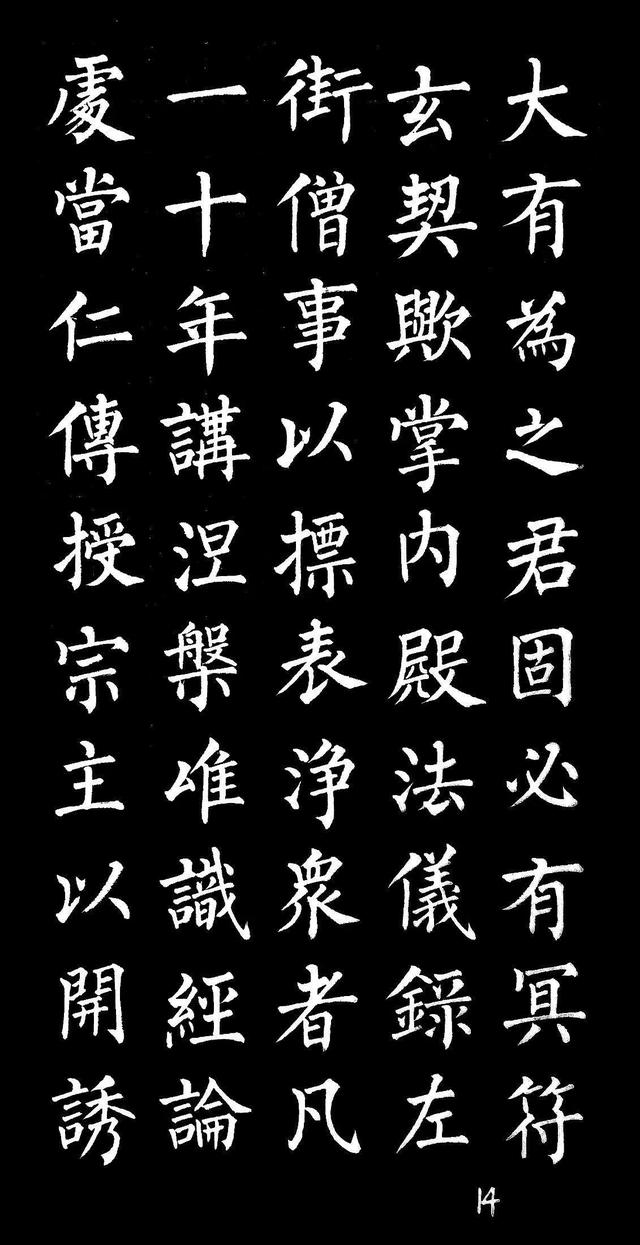 大有為之君固必有冥符
玄契歟掌內殿法儀錄左
街僧事以摽表淨衆者凡
一十年講涅槃唯識經論
處當仁傳授宗主以開誘
14